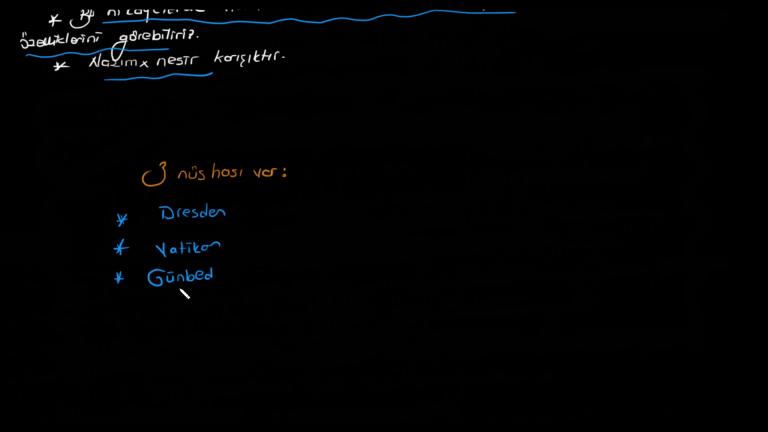 * Bu hikayelerde
özelliklerini görebiliriz.
* Nazım x nesir karışıktır.
3 nüshası var:
* Dresden
* Vatikan
* Günbed